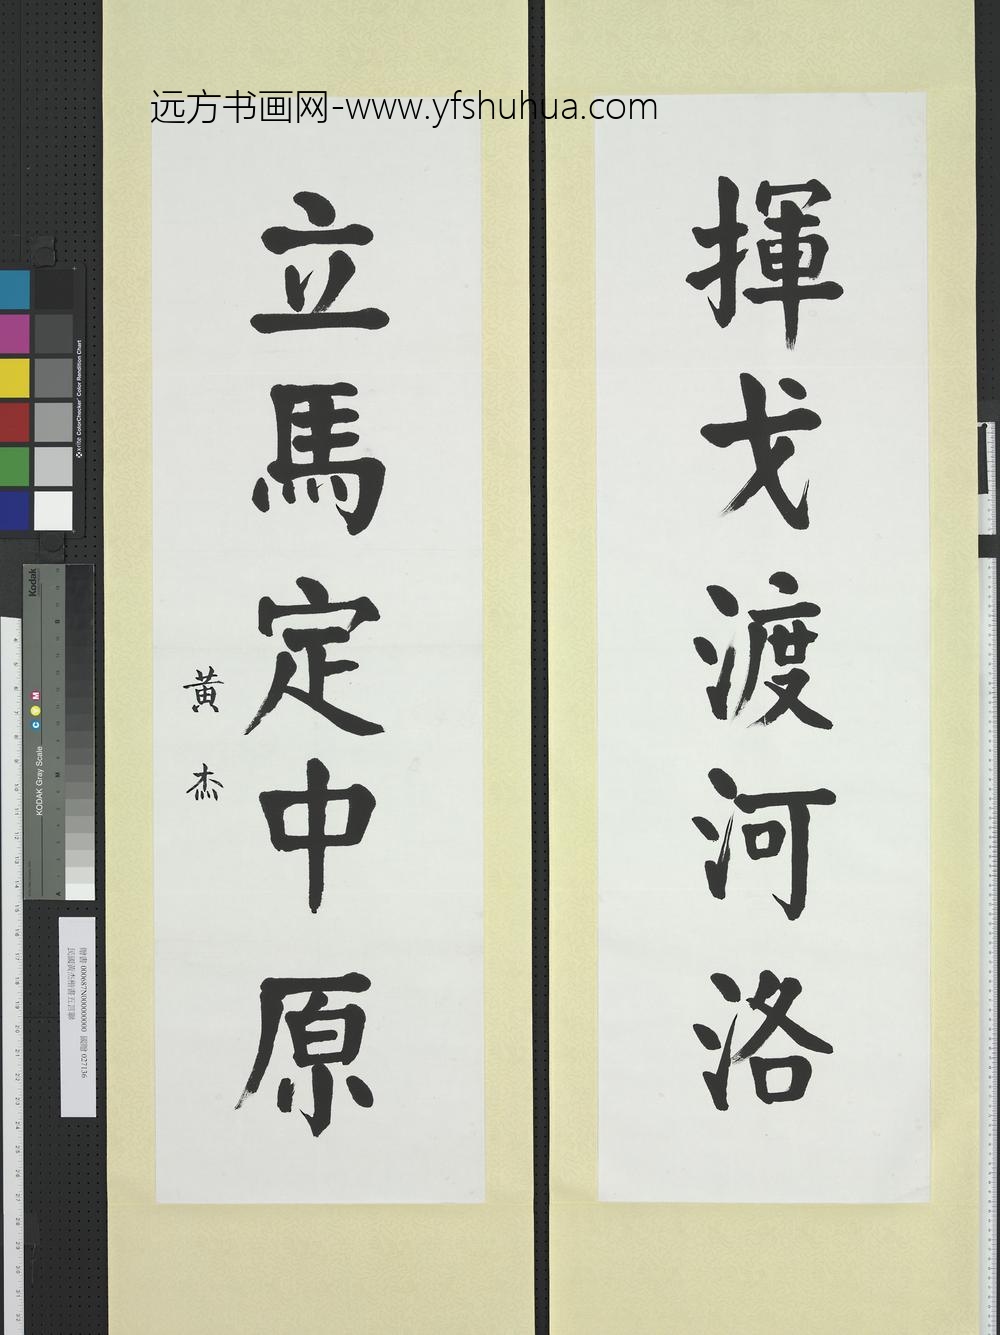 远方书画网-www.yfshuhua.com
揮戈渡河洛
立馬定中原
黃杰
x-rite ColorChecker Color Rendition Chart
Kodak
KODAK Gray Scale
C Y M